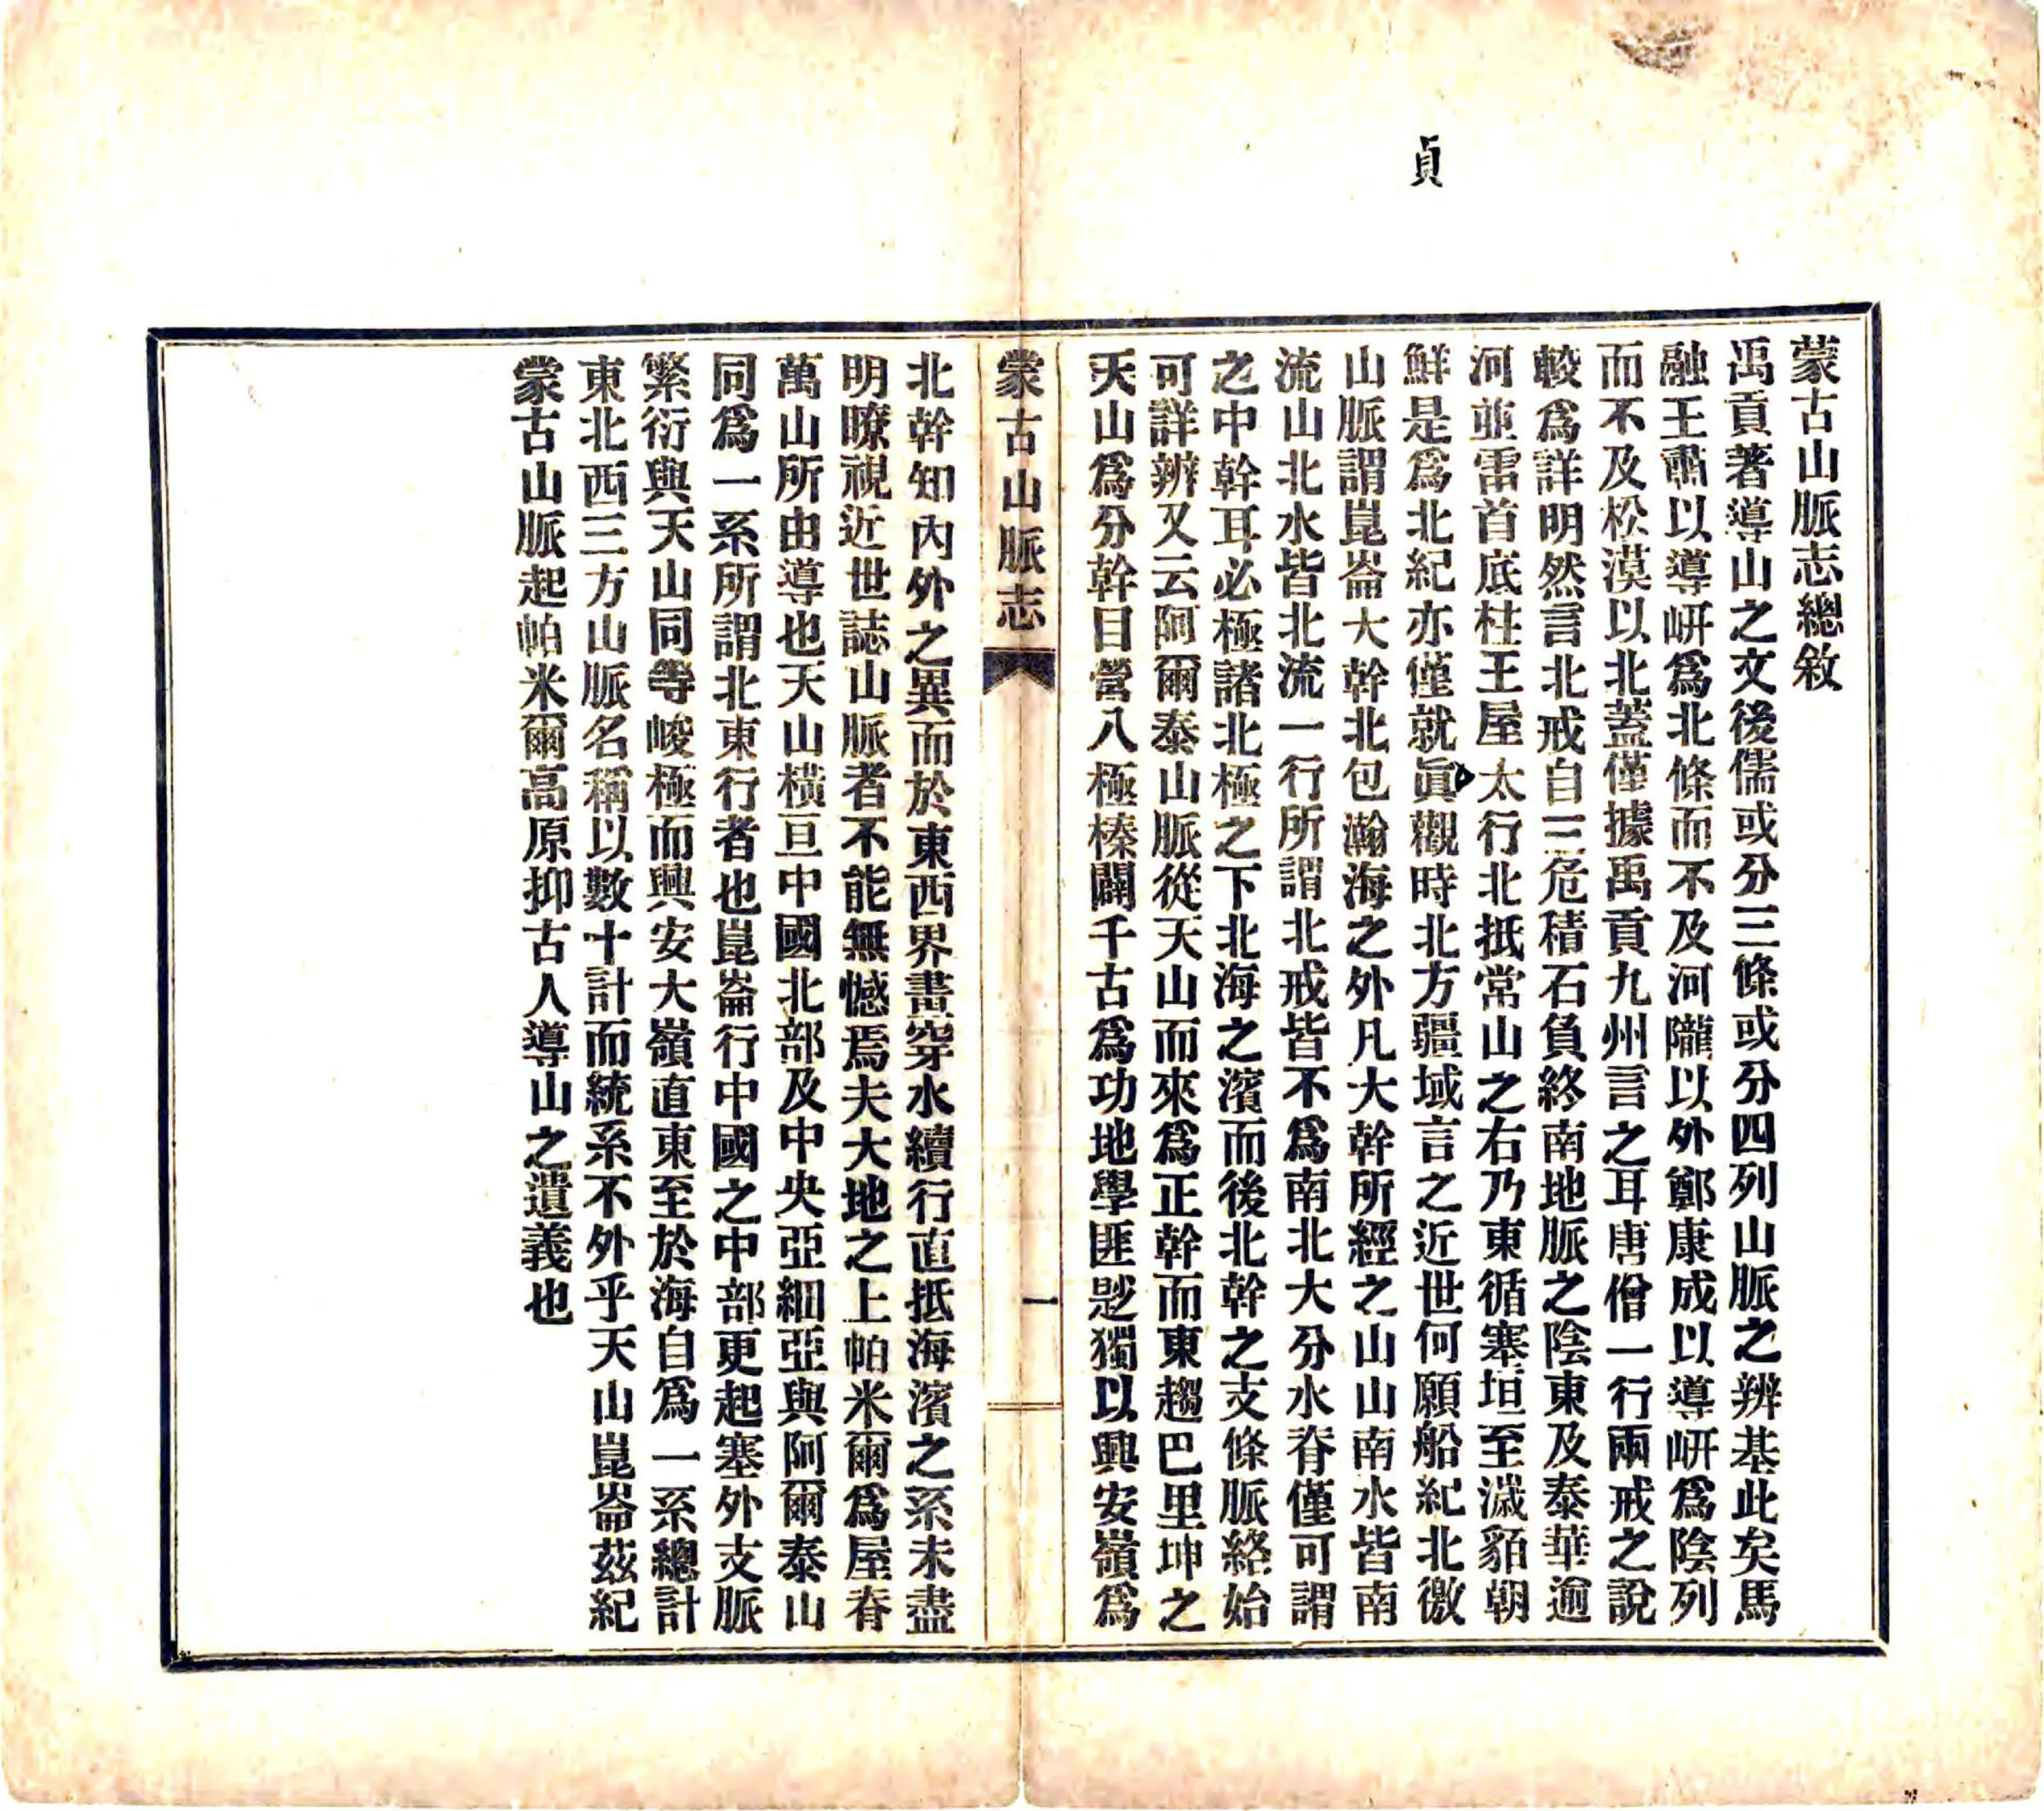 貞
蒙古山脈志總敘
禹貢著導山之文後儒或分三條或分四列山脈之辨基此矣馬
融王肅以導岍爲北條而不及河隴以外鄭康成以導岍爲陰列
而不及松漠以北蓋僅據禹貢九州言之耳唐僧一行兩戒之說
較爲詳明然言北戒自三危積石負終南地脈之陰東及泰華逾
河並雷首底柱王屋太行北抵常山之右乃東循塞垣至濊貊朝
鮮是爲北紀亦僅就眞觀時北方疆域言之近世何願船紀北徼
山脈謂崑崙大幹北包瀚海之外凡大幹所經之山山南水皆南
流山北水皆北流一行所謂北戒皆不爲南北大分水脊僅可謂
之中幹耳必極諸北極之下北海之濱而後北幹之支條脈絡始
可詳辨又云阿爾泰山脈從天山而來爲正幹而東趨巴里坤之
天山爲分幹目營八極榛闢千古爲功地學匪尟獨以興安嶺爲
蒙古山脈志
一
北幹知內外之異而於東西界畫穿水續行直抵海濱之系未盡
明瞭視近世誌山脈者不能無憾焉夫大地之上帕米爾爲屋脊
萬山所由導也天山橫亘中國北部及中央亞細亞與阿爾泰山
同爲一系所謂北東行者也崑崙行中國之中部更起塞外支脈
繁衍與天山同等峻極而興安大嶺直東至於海自爲一系總計
東北西三方山脈名稱以數十計而統系不外乎天山崑崙茲紀
蒙古山脈起帕米爾高原抑古人導山之遺義也